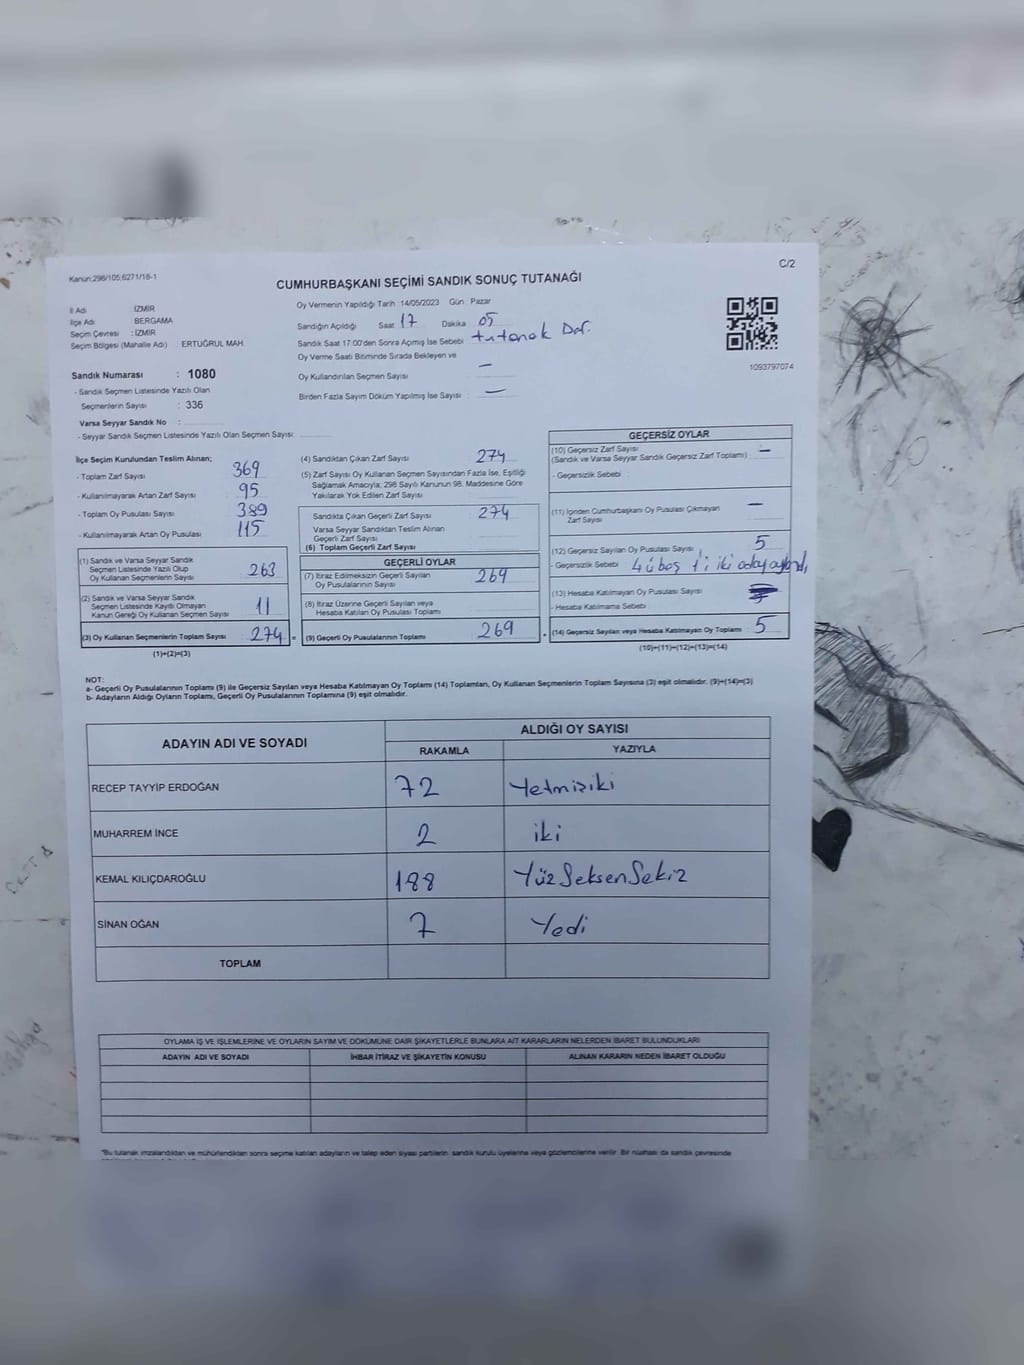 Kanun:298/105;6271/18-1
C/2
CUMHURBAŞKANI SEÇİMİ SANDIK SONUÇ TUTANAĞI
İl Adı İZMİR
İlçe Adı BERGAMA
Seçim Çevresi : İZMİR
Seçim Bölgesi (Mahalle Adı) : ERTUĞRUL MAH.
Sandık Numarası : 1080
- Sandık Seçmen Listesinde Yazılı Olan
Seçmenlerin Sayısı : 336
Varsa Seyyar Sandık No :
- Seyyar Sandık Seçmen Listesinde Yazılı Olan Seçmen Sayısı:
Oy Vermenin Yapıldığı Tarih :14/05/2023 Gün Pazar
Sandığın Açıldığı Saat 17 Dakika 05
Sandık Saat 17:00'den Sonra Açmış İse Sebebi tutanak Def.
Oy Verme Saati Bitiminde Sırada Bekleyen ve
Oy Kullandırılan Seçmen Sayısı —
Birden Fazla Sayım Döküm Yapılmış İse Sayısı : —
1093797074
İlçe Seçim Kurulundan Teslim Alınan;
- Toplam Zarf Sayısı 369
- Kullanılmayarak Artan Zarf Sayısı 95
- Toplam Oy Pusulası Sayısı 389
- Kullanılmayarak Artan Oy Pusulası 115
(1) Sandık ve Varsa Seyyar Sandık
Seçmen Listesinde Yazılı Olup
Oy Kullanan Seçmenlerin Sayısı 263
(2) Sandık ve Varsa Seyyar Sandık
Seçmen Listesinde Kayıtlı Olmayan
Kanun Gereği Oy Kullanan Seçmen Sayısı 11
(3) Oy Kullanan Seçmenlerin Toplam Sayısı 274 =
(1)+(2)=(3)
(4) Sandıktan Çıkan Zarf Sayısı 274
(5) Zarf Sayısı Oy Kullanan Seçmen Sayısından Fazla İse, Eşitliği
Sağlamak Amacıyla; 298 Sayılı Kanunun 98. Maddesine Göre
Yakılarak Yok Edilen Zarf Sayısı
Sandıkta Çıkan Geçerli Zarf Sayısı 274
Varsa Seyyar Sandıktan Teslim Alınan
Geçerli Zarf Sayısı
(6) Toplam Geçerli Zarf Sayısı
GEÇERLİ OYLAR
(7) İtiraz Edilmeksizin Geçerli Sayılan
Oy Pusulalarının Sayısı 269
(8) İtiraz Üzerine Geçerli Sayılan veya
Hesaba Katılan Oy Pusulası Toplamı
(9) Geçerli Oy Pusulalarının Toplamı 269
GEÇERSİZ OYLAR
(10) Geçersiz Zarf Sayısı
(Sandık ve Varsa Seyyar Sandık Geçersiz Zarf Toplamı) —
- Geçersizlik Sebebi
(11) İçinden Cumhurbaşkanı Oy Pusulası Çıkmayan
Zarf Sayısı —
(12) Geçersiz Sayılan Oy Pusulası Sayısı 5
- Geçersizlik Sebebi 4ü boş 1'i iki aday
(13) Hesaba Katılmayan Oy Pusulası Sayısı
- Hesaba Katılmama Sebebi
(14) Geçersiz Sayılan veya Hesaba Katılmayan Oy Toplamı 5
(10)+(11)+(12)+(13)=(14)
NOT:
a- Geçerli Oy Pusulalarının Toplamı (9) ile Geçersiz Sayılan veya Hesaba Katılmayan Oy Toplamı (14) Toplamları, Oy Kullanan Seçmenlerin Toplam Sayısına (3) eşit olmalıdır. (9)+(14)=(3)
b- Adayların Aldığı Oyların Toplamı, Geçerli Oy Pusulalarının Toplamına (9) eşit olmalıdır.
ADAYIN ADI VE SOYADI ALDIĞI OY SAYISI
RAKAMLA YAZIYLA
RECEP TAYYİP ERDOĞAN 72 Yetmişiki
MUHARREM İNCE 2 iki
KEMAL KILIÇDAROĞLU 188 YüzSeksenSekiz
SİNAN OĞAN 7 Yedi
TOPLAM
OYLAMA İŞ VE İŞLEMLERİNE VE OYLARIN SAYIM VE DÖKÜMÜNE DAİR ŞİKAYETLERLE BUNLARA AİT KARARLARIN NELERDEN İBARET BULUNDUKLARI
ADAYIN ADI VE SOYADI İHBAR İTİRAZ VE ŞİKAYETİN KONUSU ALINAN KARARIN NEDEN İBARET OLDUĞU
*Bu tutanak imzalandıktan ve mühürlendikten sonra seçime katılan adayların ve talep eden siyasi partilerin sandık kurulu üyelerine veya gözlemcilerine verilir. Bir nüshası da sandık çevresinde